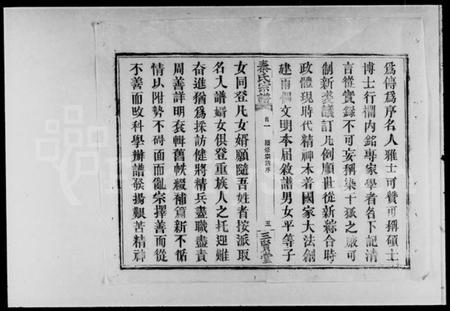 為傳為序名人雅士可贊可稱碩士
博士行欄內銘專家學者名下記清
言從實錄不可妄稱染干狐之嚴可
創新求議訂凡例順世從新綜合時
政體現時代精神本着國家大法創
建兩個文明本届敘譜男女平等子
秦氏宗譜
卷一
序
五
三賢堂
女同登凡女婿願隨吾姓者按派取
名入譜婦女俱登重族人之托迎難
奮進猶為採訪健將精兵盡職盡責
周善詳明裒輯舊帙綴補篇新不惰
情以附勢不碍面而亂宗擇善而從
不善而改科學辦譜發揚艱苦精神